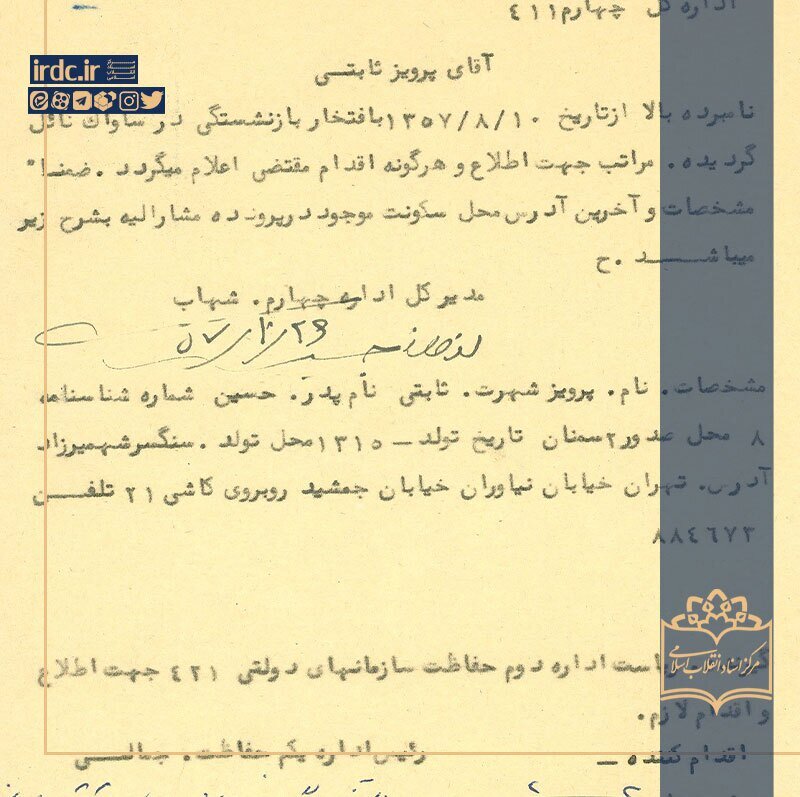 اداره کل چهارم ٤١١
irdc.ir
آقای پرویز ثابتی
نامبرده بالا ازتاریخ ١٣٥٧/٨/١٠ بافتخار بازنشستگی در ساواك نائل
گردیده. مراتب جهت اطلاع و هرگونه اقدام مقتضی اعلام میگردد .ضمنا"
مشخصات و آخرین آدرس محل سکونت موجود درپرونده مشارالیه بشرح زیر
میباشد .ح
مدیرکل اداره چهارم. شهاب
٥٧
مشخصات. نام. پرویز شهرت. ثابتی نام پدر. حسین شماره شناسنامه
٨ محل صدور ٢سمنان تاریخ تولد – ١٣١٥محل تولد .سنگسرشهمیرزاد
آدرس. تهران خیابان نیاوران خیابان جمشید روبروی کاشی ٢١ تلفن
٨٨٤٦٧٣
مرکز اسناد انقلاب اسلامی
ریاست اداره دوم حفاظت سازمانهای دولتی ٤٢١ جهت اطلاع
و اقدام لازم.
اقدام کننده – رئیس اداره یکم حفاظت. جمالی